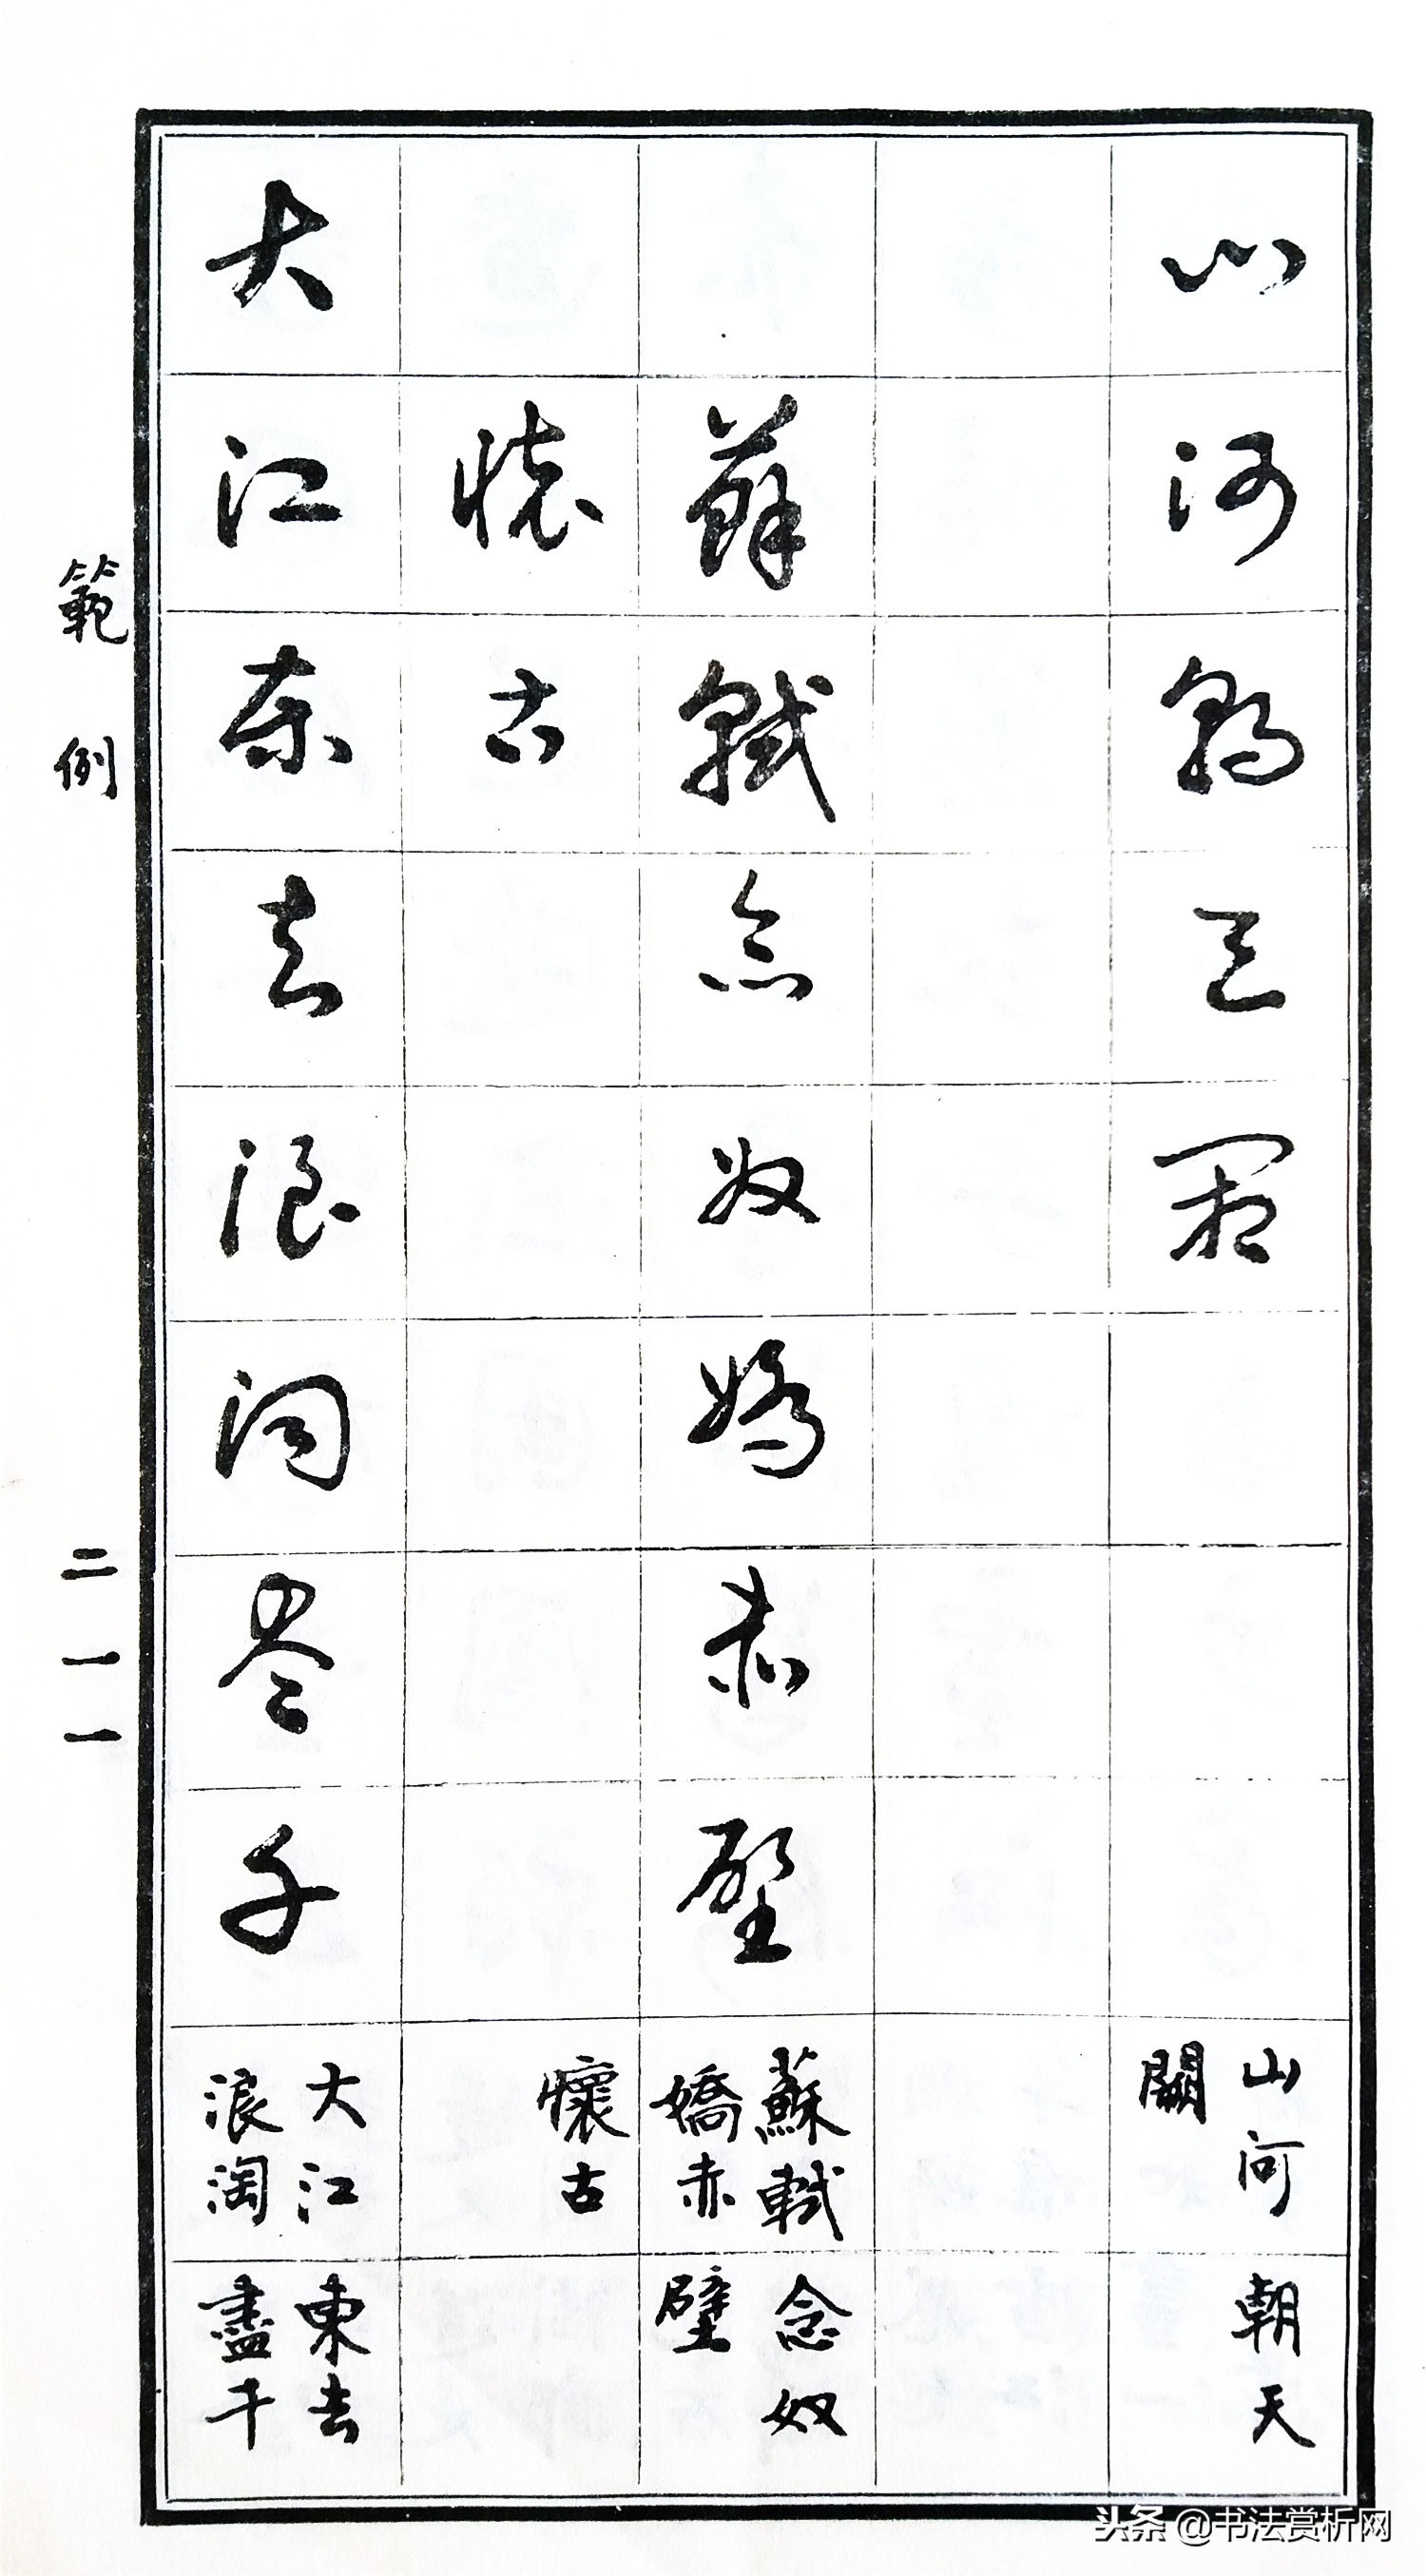 山河朝天闕
山河朝天
闕
蘇軾念奴嬌赤壁
蘇軾念奴
嬌赤壁
懷古
懷古
大江東去浪淘盡千
大江東去
浪淘盡千
範例
二一一
头条 @书法赏析网